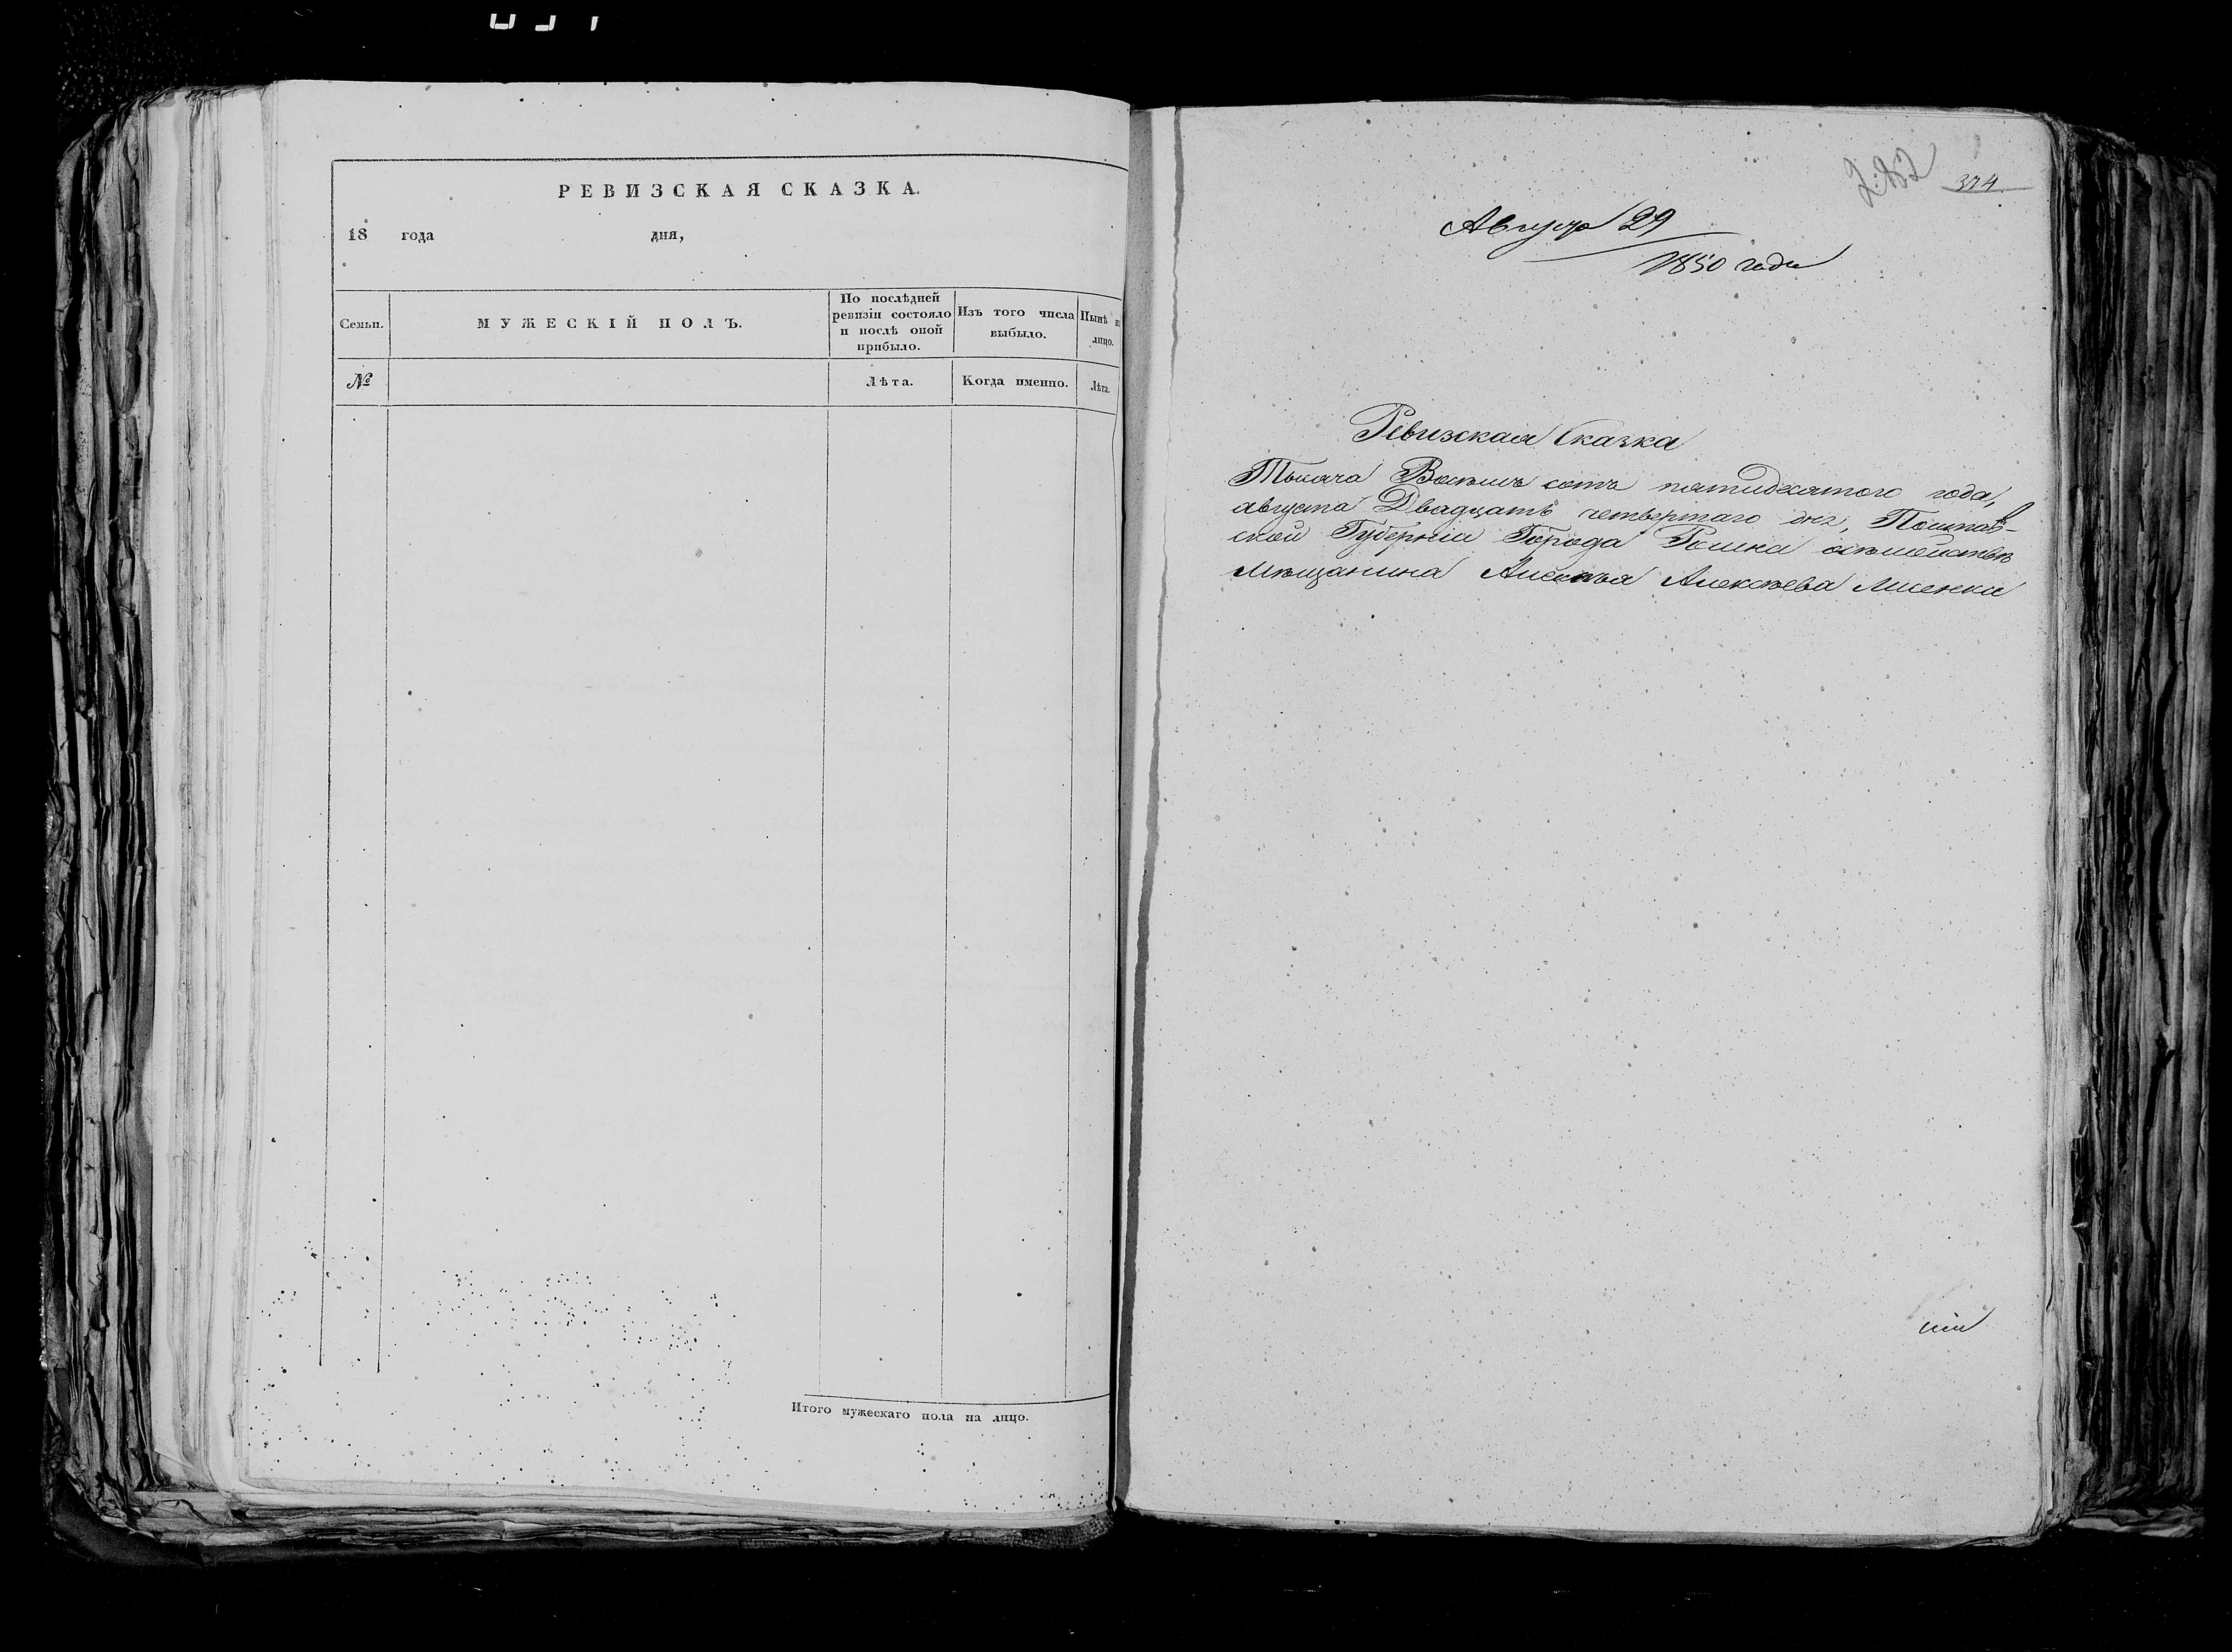 РЕВИЗСКАЯ СКАЗКА.
18 года дня,
Семьи.
МУЖЕСКІЙ ПОЛЪ.
По послѣдней
ревизіи состояло
и послѣ оной
прибыло.
Изъ того числа
выбыло.
Нынѣ
лицо.
№
Лѣта.
Когда именно.
Лѣта.
Итого мужескаго пола на лицо.
374
Август 29
1850 года
Ревизская Сказка
Тысяча Восемь сотъ пятидесятого года,
августа Двадцать четвертаго дня, Полтав-
ской Губерніи Города Ромна
мѣщанина Алексѣева Лисенки